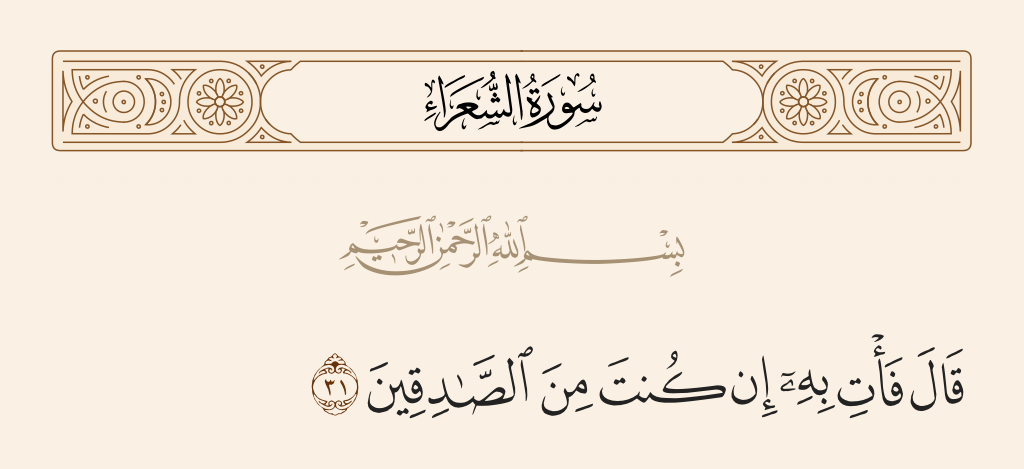 سُورَةُ الشُّعَرَاءِ
بِسْمِ ٱللَّهِ ٱلرَّحْمَٰنِ ٱلرَّحِيمِ
قَالَ فَأْتِ بِهِۦٓ إِن كُنتَ مِنَ ٱلصَّـٰدِقِينَ ٣١